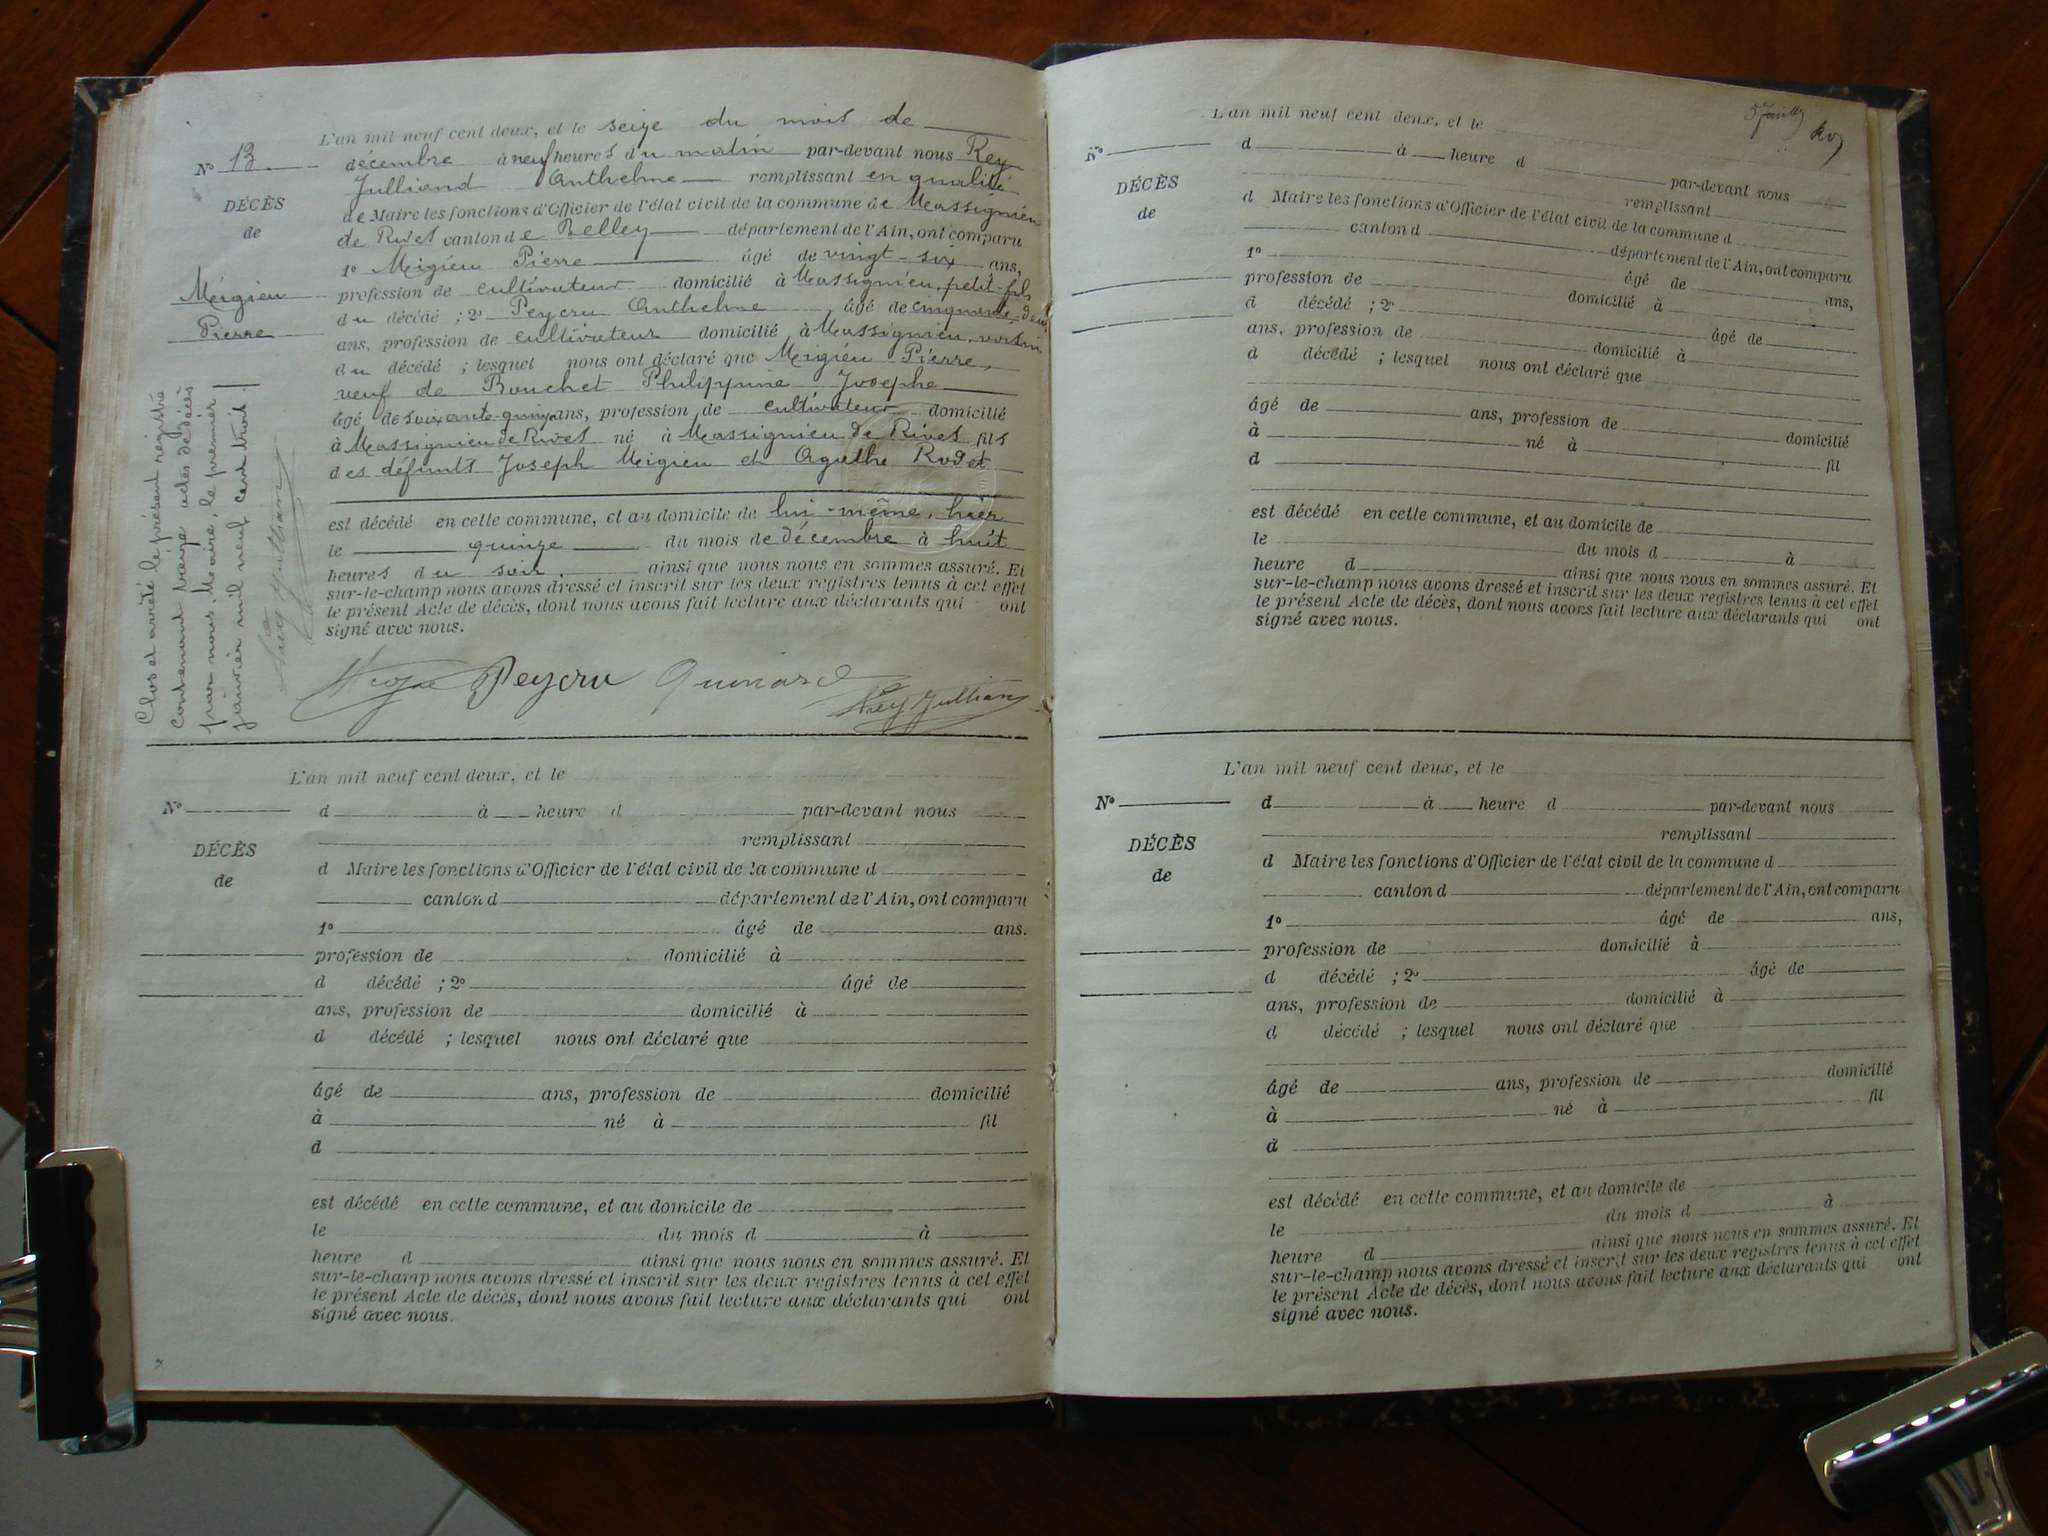 L'an mil neuf cent deux, et le seize du mois de
No 13. décembre à neuf heures du matin par-devant nous Rey
Julliand Anthelme remplissant en qualité
DÉCÈS
de Maire les fonctions d'Officier de l'état civil de la commune de Massignieu
de
de Rives canton de Belley département de l'Ain, ont comparu
1o Migieu Pierre âgé de vingt-six ans,
Migieu
profession de cultivateur domicilié à Massignieu, petit-fils
du décédé ; 2o Peycru Anthelme âgé de cinquante-deux
Pierre
ans, profession de cultivateur domicilié à Massignieu, voisin
du décédé ; lesquel nous ont déclaré que Migieu Pierre,
veuf de Bouchet Philippine Josephe
âgé de soixante-quinze ans, profession de cultivateur domicilié
à Massignieu de Rives né à Massignieu de Rives fils
des défunts Joseph Migieu et Agathe Rodet
est décédé en cette commune, et au domicile de lui-même, hier
le quinze du mois de décembre à huit
heures du soir, ainsi que nous nous en sommes assuré. Et
sur-le-champ nous avons dressé et inscrit sur les deux registres tenus à cet effet
le présent Acte de décès, dont nous avons fait lecture aux déclarants qui ont
signé avec nous.
Peycru Quinard
Rey Jullian
Clos et arrêté le présent registre
contenant treize actes de décès
par nous Maire, le premier
janvier mil neuf cent trois.
Rey Jullian
L'an mil neuf cent deux, et le
No d à heure d par-devant nous
remplissant
DÉCÈS
d Maire les fonctions d'Officier de l'état civil de la commune d
de
canton d département de l'Ain, ont comparu
1o âgé de ans.
profession de domicilié à
d décédé ; 2o âgé de
ans, profession de domicilié à
d décédé ; lesquel nous ont déclaré que
âgé de ans, profession de domicilié
à né à fil
d
est décédé en cette commune, et au domicile de
le du mois d à
heure d ainsi que nous nous en sommes assuré. Et
sur-le-champ nous avons dressé et inscrit sur les deux registres tenus à cet effet
le présent Acte de décès, dont nous avons fait lecture aux déclarants qui ont
signé avec nous.
L'an mil neuf cent deux, et le
No d à heure d par-devant nous
remplissant
DÉCÈS
d Maire les fonctions d'Officier de l'état civil de la commune d
de
canton d département de l'Ain, ont comparu
1o âgé de ans,
profession de domicilié à
d décédé ; 2o âgé de
ans, profession de domicilié à
d décédé ; lesquel nous ont déclaré que
âgé de ans, profession de domicilié
à né à fil
d
est décédé en cette commune, et au domicile de
le du mois d à
heure d ainsi que nous nous en sommes assuré. Et
sur-le-champ nous avons dressé et inscrit sur les deux registres tenus à cet effet
le présent Acte de décès, dont nous avons fait lecture aux déclarants qui ont
signé avec nous.
L'an mil neuf cent deux, et le
No d à heure d par-devant nous
remplissant
DÉCÈS
d Maire les fonctions d'Officier de l'état civil de la commune d
de
canton d département de l'Ain, ont comparu
1o âgé de ans,
profession de domicilié à
d décédé ; 2o âgé de
ans, profession de domicilié à
d décédé ; lesquel nous ont déclaré que
âgé de ans, profession de domicilié
à né à fil
d
est décédé en cette commune, et au domicile de
le du mois d à
heure d ainsi que nous nous en sommes assuré. Et
sur-le-champ nous avons dressé et inscrit sur les deux registres tenus à cet effet
le présent Acte de décès, dont nous avons fait lecture aux déclarants qui ont
signé avec nous.